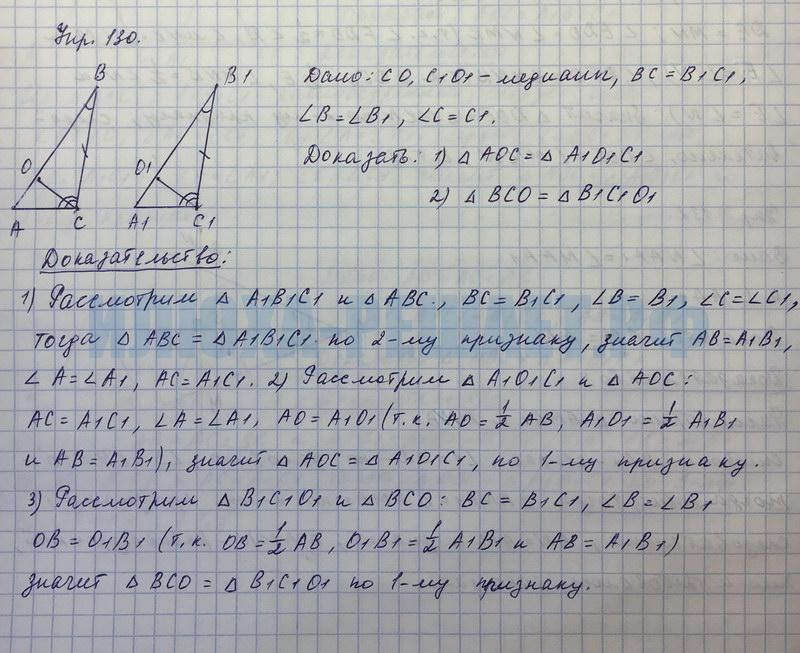 Упр. 130.
B
B1
Дано: CO, C1O1 – медианы, BC = B1C1,
∠B = ∠B1, ∠C = C1.
O
O1
Доказать: 1) △ AOC = △ A1O1C1
2) △ BCO = △ B1C1O1
A
C
A1
C1
Доказательство:
1) Рассмотрим △ A1B1C1 и △ ABC., BC = B1C1, ∠B = B1, ∠C = ∠C1,
тогда △ ABC = △ A1B1C1 по 2-му признаку, значит AB = A1B1,
∠ A = ∠A1, AC = A1C1. 2) Рассмотрим △ A1O1C1 и △ AOC:
AC = A1C1, ∠A = ∠A1, AO = A1O1 (т.к. AO = 1/2 AB, A1O1 = 1/2 A1B1
и AB = A1B1), значит △ AOC = △ A1O1C1, по 1-му признаку.
3) Рассмотрим △ B1C1O1 и △ BCO: BC = B1C1, ∠B = ∠B1
OB = O1B1 (т.к. OB = 1/2 AB, O1B1 = 1/2 A1B1 и AB = A1B1)
значит △ BCO = △ B1C1O1 по 1-му признаку.